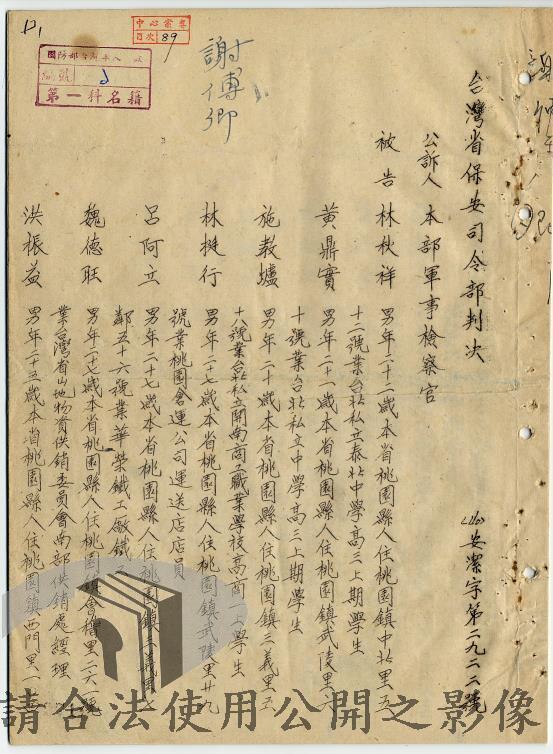 謝傅卿
台灣省保安司令部判決
安潔字第二九二二號
公訴人 本部軍事檢察官
被告 林秋祥 男年二十二歲本省桃園縣人住桃園鎮中北里五
十二號業台北私立泰北中學高三上期學生
黃鼎實 男年二十一歲本省桃園縣人住桃園鎮武陵里六
十號業台北私立中學高三上期學生
施教爐 男年二十歲本省桃園縣人住桃園鎮三義里五
十八號業台北私立開南商工職業學校高商一上學生
林挺行 男年二十七歲本省桃園縣人住桃園鎮武陵里廿九
號業桃園倉運公司運送店店員
呂阿立 男年二十七歲本省桃園縣人住桃園鎮三義里七
鄰五十六號業華榮鐵工廠鐵工
魏德旺 男年二十七歲本省桃園縣人住桃園鎮會稽里二六一號
業台灣省山地物資供銷委員會南部供銷處經理
洪振益 男年二十五歲本省桃園縣人住桃園鎮西門里一
中心檔案
目次 89
編號
第一科名籍
請合法使用公開之影像